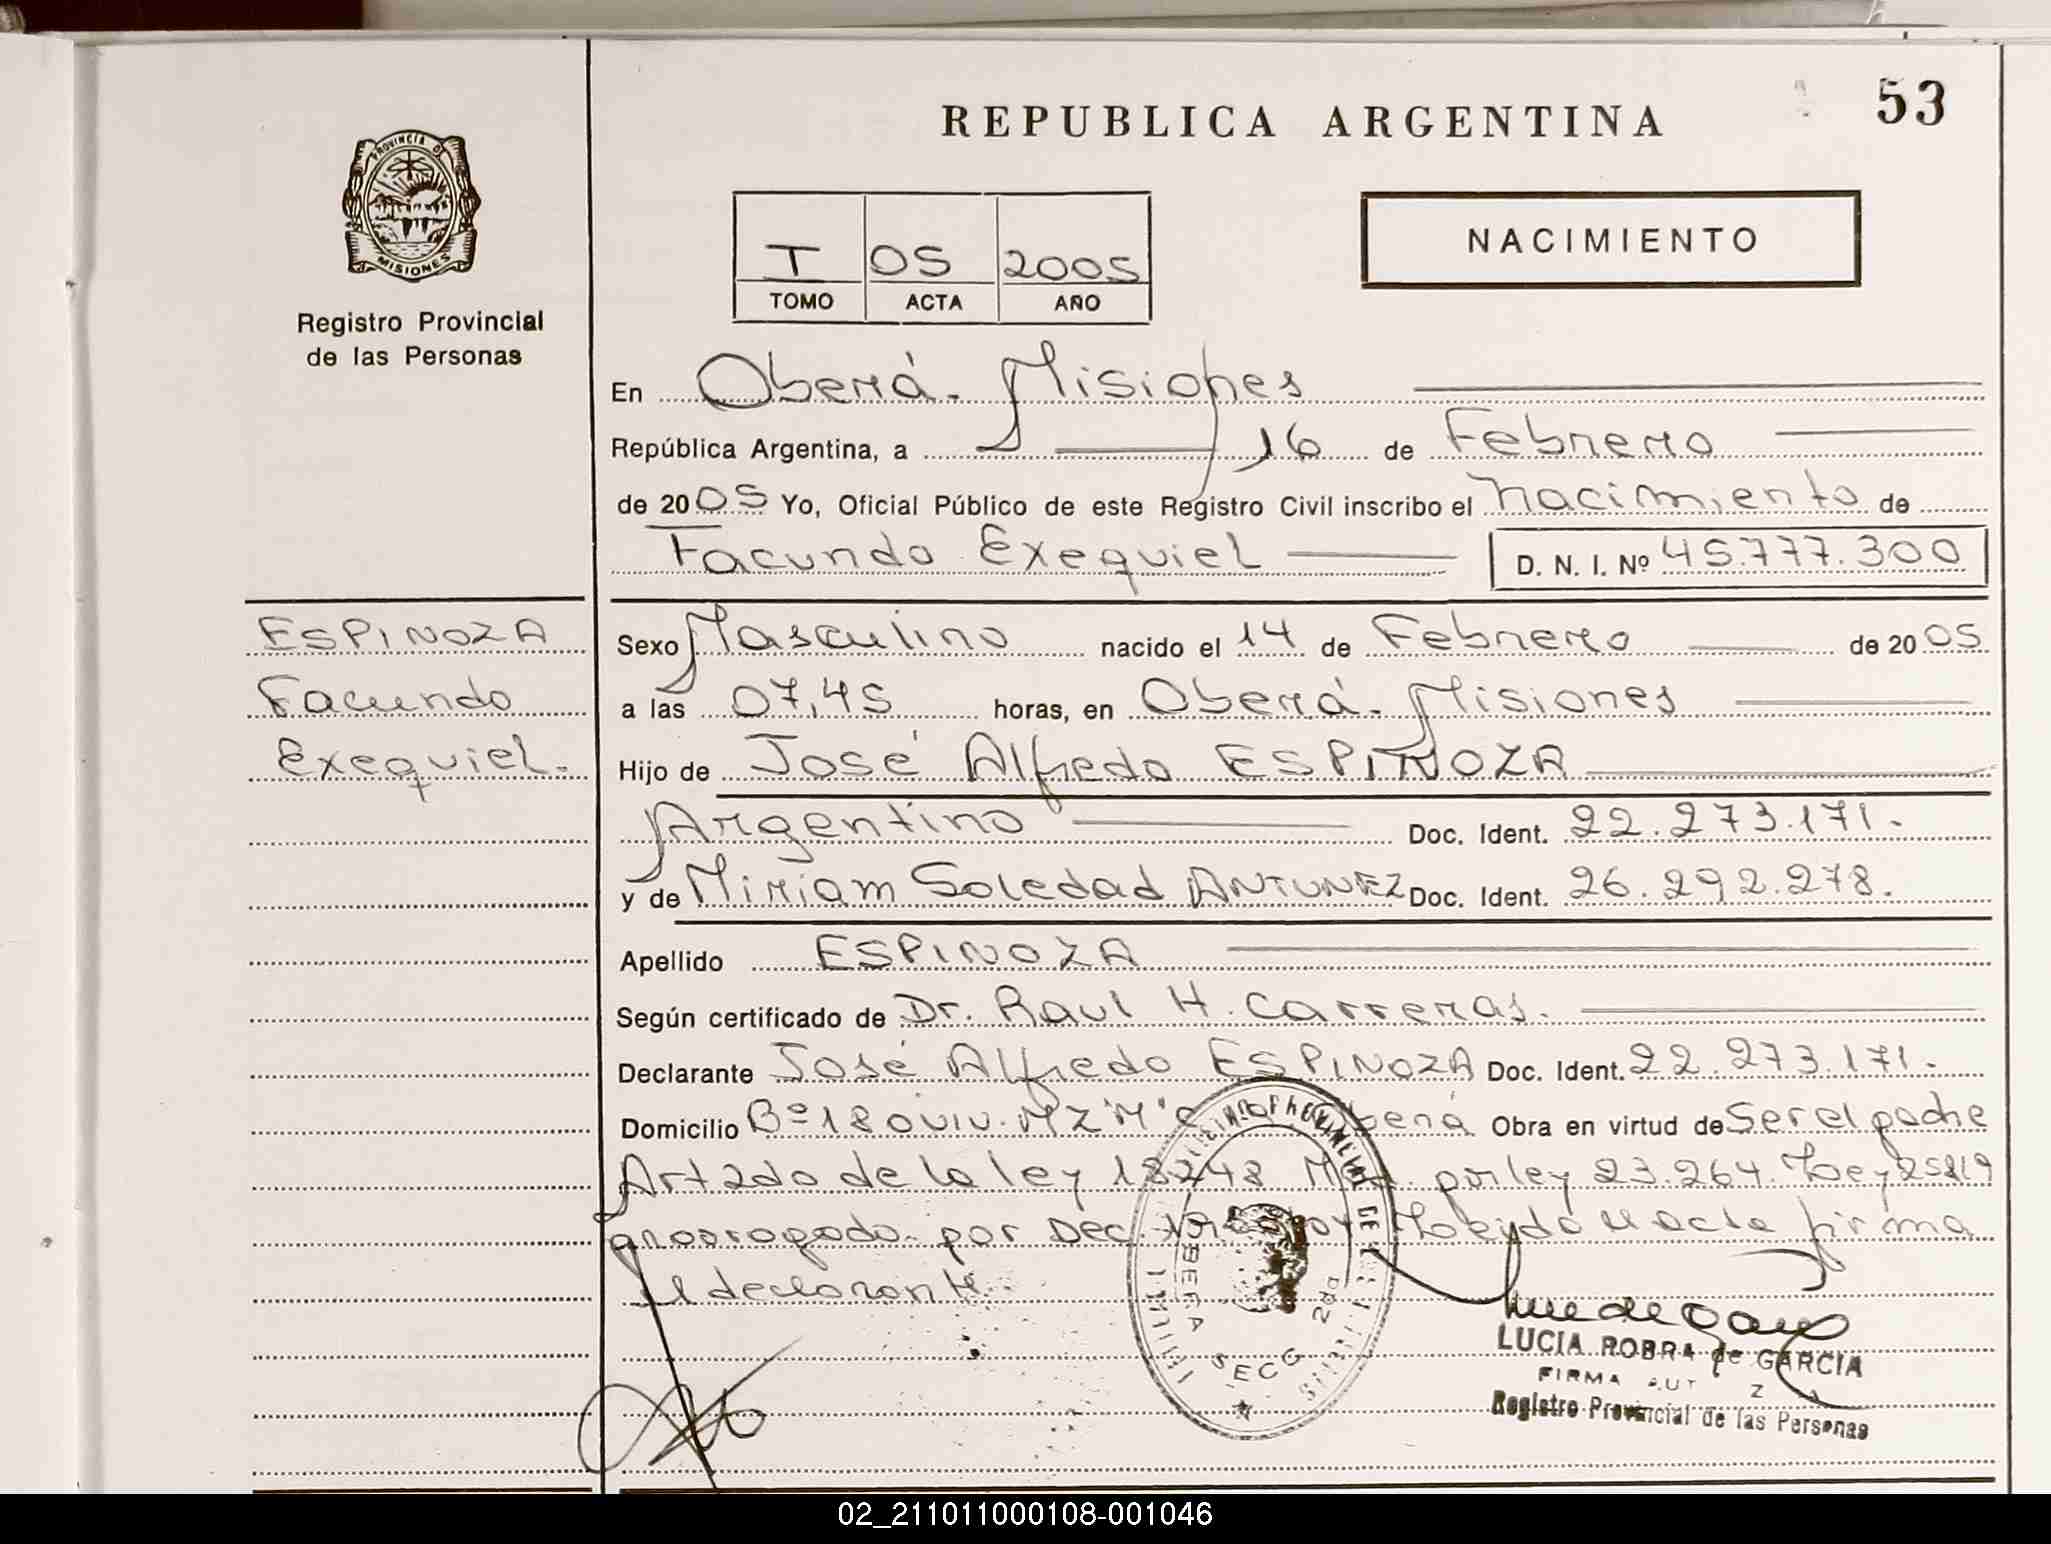 53
REPUBLICA ARGENTINA
PROVINCIA DE
MISIONES
Registro Provincial
de las Personas
NACIMIENTO
I 05 2005
TOMO ACTA AÑO
En Oberá - Misiones
República Argentina, a 16 de Febrero
de 2005 Yo, Oficial Público de este Registro Civil inscribo el Nacimiento de
Facundo Exequiel D. N. I. Nº 45.777.300
ESPINOZA
Facundo
Exequiel.
Sexo Masculino nacido el 14 de Febrero de 2005
a las 07,45 horas, en Oberá - Misiones
Hijo de José Alfredo ESPINOZA
Argentino Doc. Ident. 22.273.171.
y de Miriam Soledad ANTUNEZ Doc. Ident. 26.292.278.
Apellido ESPINOZA
Según certificado de Dr. Raul H. Carreras.
Declarante José Alfredo ESPINOZA Doc. Ident. 22.273.171.
Domicilio Bº 180 VIV. MZ "M" Obra en virtud de Ser el padre
Art 2do de la ley 18248 por ley 23.264. Ley 25819
por Dec. Leída el acta firma
el declarante.
OBERA SECC 2da
LUCIA ROBRA de GARCIA
FIRMA
Registro Provincial de las Personas
02_211011000108-001046